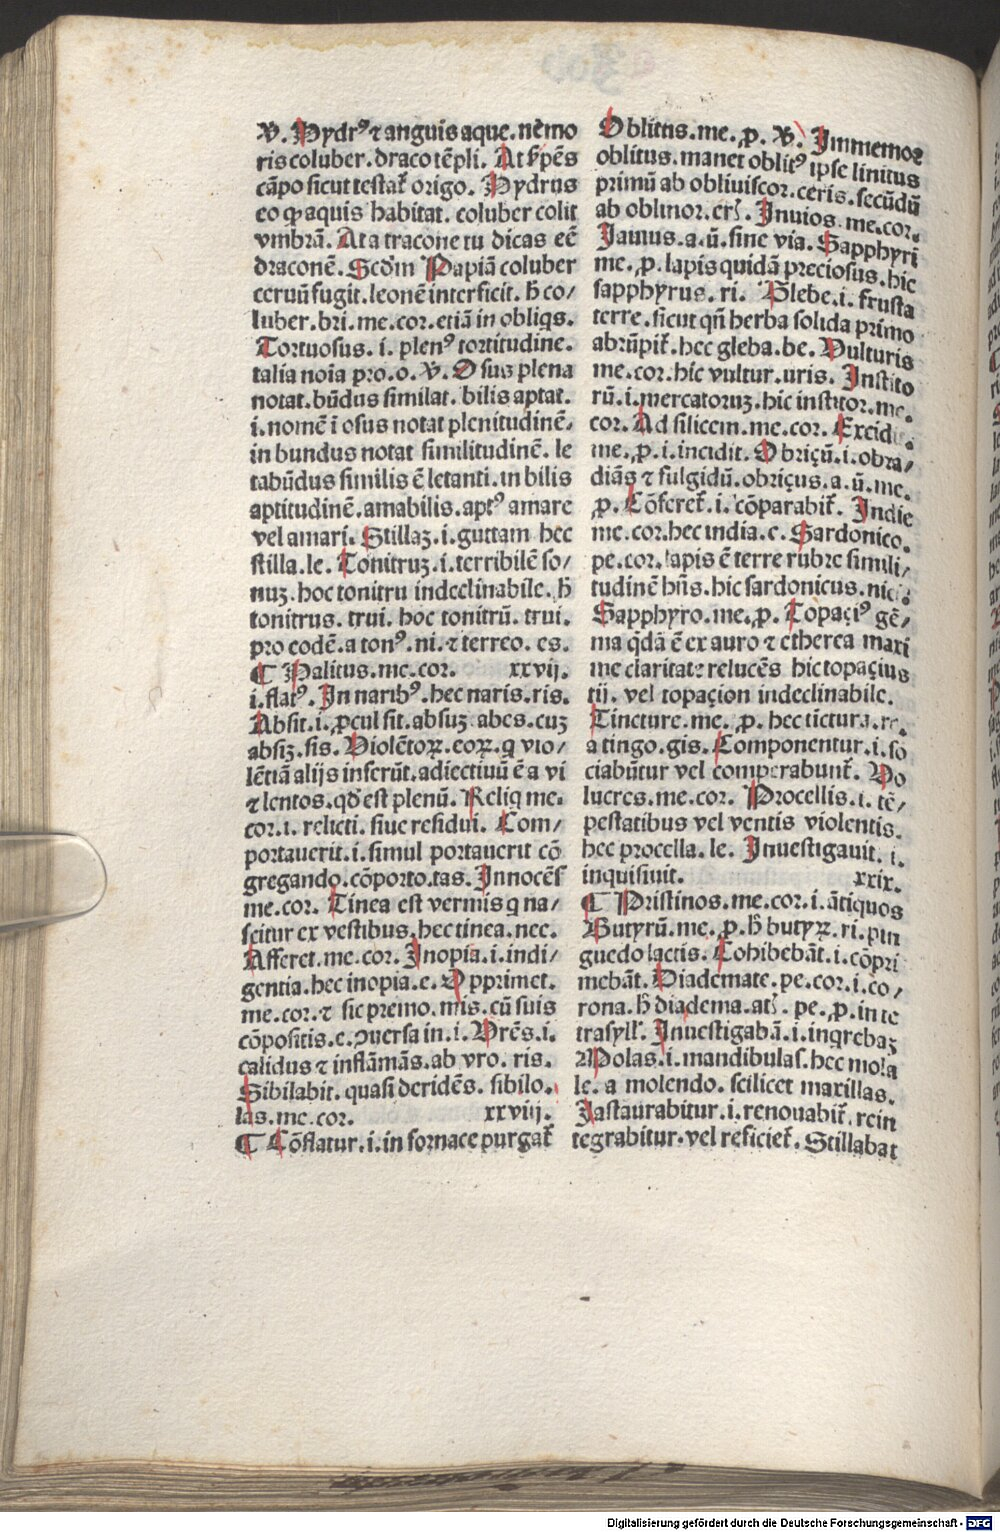 Ꝟ. Hydrꝰ ⁊ anguis aque. nemo
ris coluber. draco tēpli. At ẜpēs
cāpo sicut testat᷑ origo. Hydrus
eo ꝙ aquis habitat. coluber colit
vmbrā. At a tracone tu dicas eē
draconē. Scd'm Papiā coluber
ceruū fugit. leonē interficit. h̄ co/
luber. bri. me. cor. etiā in obliqs.
Tortuosus. i. plenꝰ tortitudine.
talia noīa pro. o. Ꝟ. Osus plena
notat. būdus similat. bilis aptat.
i. nomē ī osus notat plenitudinē.
in bundus notat similitudinē. le
tabūdus similis ē letanti. in bilis
aptitudinē. amabilis. aptꝰ amare
vel amari. Stillaꝫ. i. guttam hec
stilla. le. Tonitruꝫ. i. terribilē so/
nuꝫ. hoc tonitru indeclinabile. h̄
tonitrus. trui. hoc tonitrū. trui.
pro eodē. a tonꝰ. ni. ⁊ terreo. es.
¶ Halitus. me. cor. xxvij.
i. flatꝰ. In naribꝰ. hec naris. ris.
Absit. i. ꝓcul sit. absuꝫ. abes. cuꝫ
absiꝫ. sis. Violētoꝝ. eoꝝ. q vio/
lētiā alijs inferūt. adiectiuū ē a vi
⁊ lentos. qd' est plenū. Reliq me.
cor. i. relicti. siue residui. Com/
portauerit. i. simul portauerit cō
gregando. cōporto. tas. Innocēs
me. cor. Tinea est vermis q na/
scitur ex vestibus. hec tinea. nee.
Afferet. me. cor. Inopia. i. indi/
gentia. hec inopia. e. Opprimet.
me. cor. ⁊ sic premo. mis. cū suis
cōpositis. e. ꝯuersa in. i. Vrēs. i.
calidus ⁊ inflāmās. ab vro. ris.
Sibilabit. quasi deridēs. sibilo.
las. me. cor. xxviij.
¶ Cōflatur. i. in fornace purgat᷑
Oblitus. me. ꝓ. Ꝟ. Immemoꝛ
oblitus. manet oblitꝰ ipse linitus
primū ab obliuiscor. ceris. secūdū
ab oblinor. erꝭ. Inuios. me. cor.
Iauius. a. ū. sine via. Sapphyri
me. ꝓ. lapis quidā preciosus. hic
sapphyrus. ri. Glebe. i. frusta
terre. sicut qn̄ herba solida primo
abrūpit᷑. hec gleba. be. Vulturis
me. cor. hic vultur. uris. Instito
rū. i. mercatoruꝫ. hic institor. me.
cor. Ad silicem. me. cor. Excid
me. ꝓ. i. incidit. Obriçū. i. obra/
diās ⁊ fulgidū. obriçus. a. ū. me.
ꝓ. Cōferet᷑. i. cōparabit᷑. Indie
me. cor. hec india. e. Sardonico.
pe. cor. lapis ē terre rubre simili/
tudinē hn̄s. hic sardonicus. nici.
Sapphyro. me. ꝓ. Topaçiꝰ gē/
ma q̄dā ē ex auro ⁊ etherea maxi
me claritate relucēs hic topaçius
tij. vel topaçion indeclinabile.
Tincture. me. ꝓ. hec tīctura. re.
a tingo. gis. Componentur. i. so
ciabūtur vel comperabunt᷑. Vo
lucres. me. cor. Procellis. i. tē/
pestatibus vel ventis violentis.
hec procella. le. Inuestigauit. i.
inquisiuit. xxix.
¶ Pristinos. me. cor. i. ātiquos
Butyrū. me. ꝓ. h̄ butyꝝ. ri. pin
guedo lactis. Cohibebāt. i. cōpri
mebāt. Diademate. pe. cor. i. co/
rona. h̄ diadema. atꝭ. pe. ꝓ. in te
trasyll'. Inuestigabā. i. inqrebaꝫ
Molas. i. mandibulas. hec mola
le. a molendo. scilicet maxillas.
Iastaurabitur. i. renouabit᷑. rein
tegrabitur. vel reficiet᷑. Stillabat
Digitalisierung gefördert durch die Deutsche Forschungsgemeinschaft - DFG